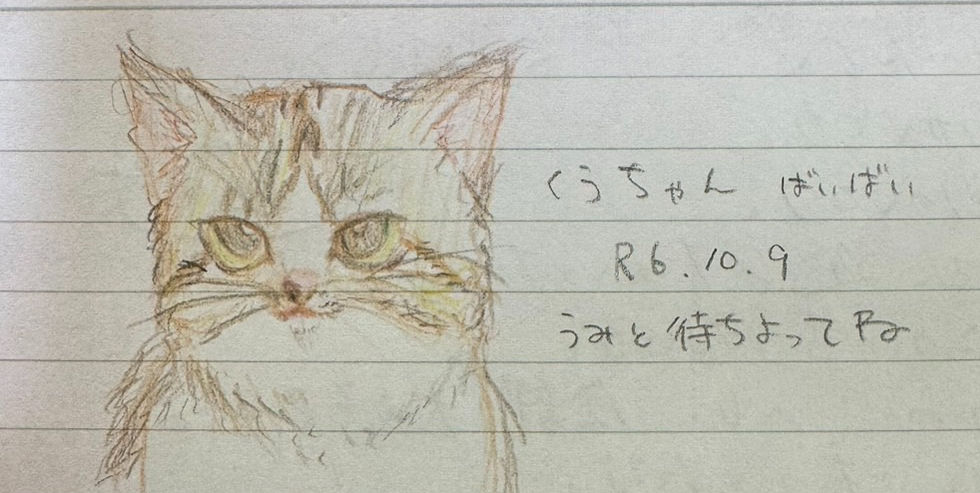 くうちゃん ばいばい
R6.10.9
うみと待ちよってね